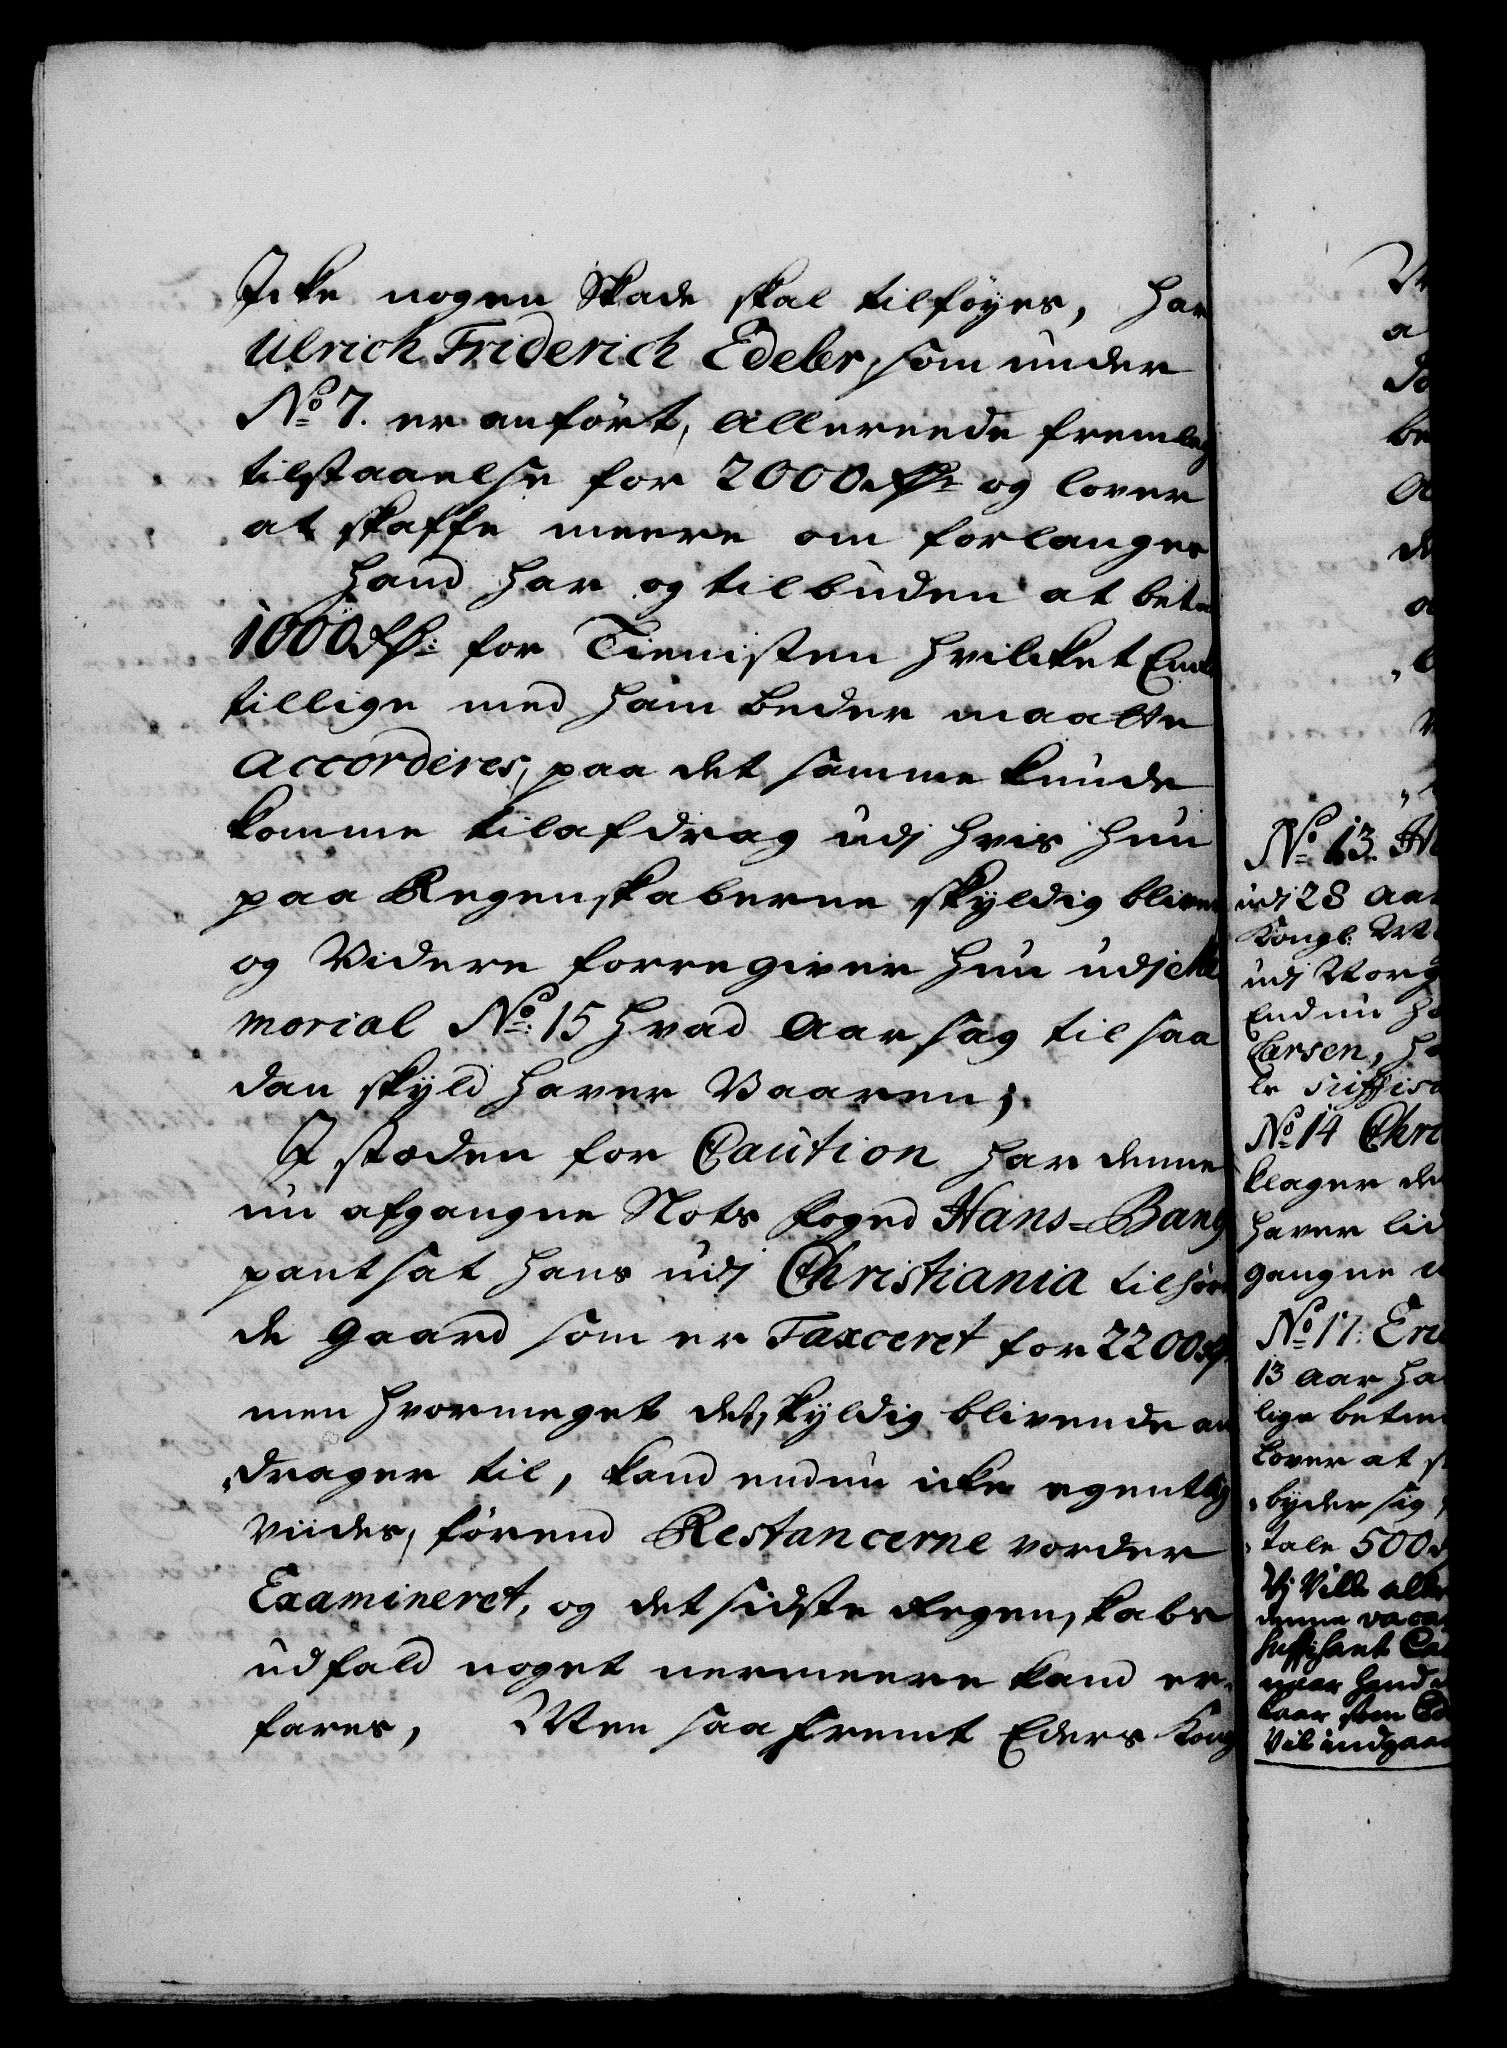 Icke nogen Skade skal tilføyes, har
Ulrich Friderich Edeler, som under
No 7. er anført, allereede fremlag
tilstaaelse for 2000 Rdr og lover
at skaffe meere om forlanges
Hand har og tilbuden at beta
1000 Rd: for Tienisten hvilcket Enk
tillige med ham beder maatte
accorderes, paa det samme kunde
komme til afdrag udj hvis hun
paa Regenskaberne skyldig bliver
og Videre forregiver hun udj
morial No: 15 hvad Aarsag til saa
dan skyld haver Vaaren;
I stæden for Caution har denne
nu afgangne Slots foged Hans-Bang
pantsat hans udj Christiania tilhør
de Gaard som er Taxceret for 2200
men hvormeget det skyldig blivende an
drager til, kand endnu icke egentlig
viides, førend Restancerne vorder
Examineret, og det sidste Regenskabs
udfald noget nermeere kand er-
fares, Men saafremt Eders Kong
No 13. H
udj 28 Aar
Kongl:
udj Norg
Endnu ha
Larsen, ha
le suffisa
No 14 Chri
klager de
haver lid
gangne
No 17: Eri
13 Aar ha
lige betien
Lover at s
byder sig
tale 500
Vj Ville aller
denne
suffisant Ca
naar hand
som
Vil indgaa